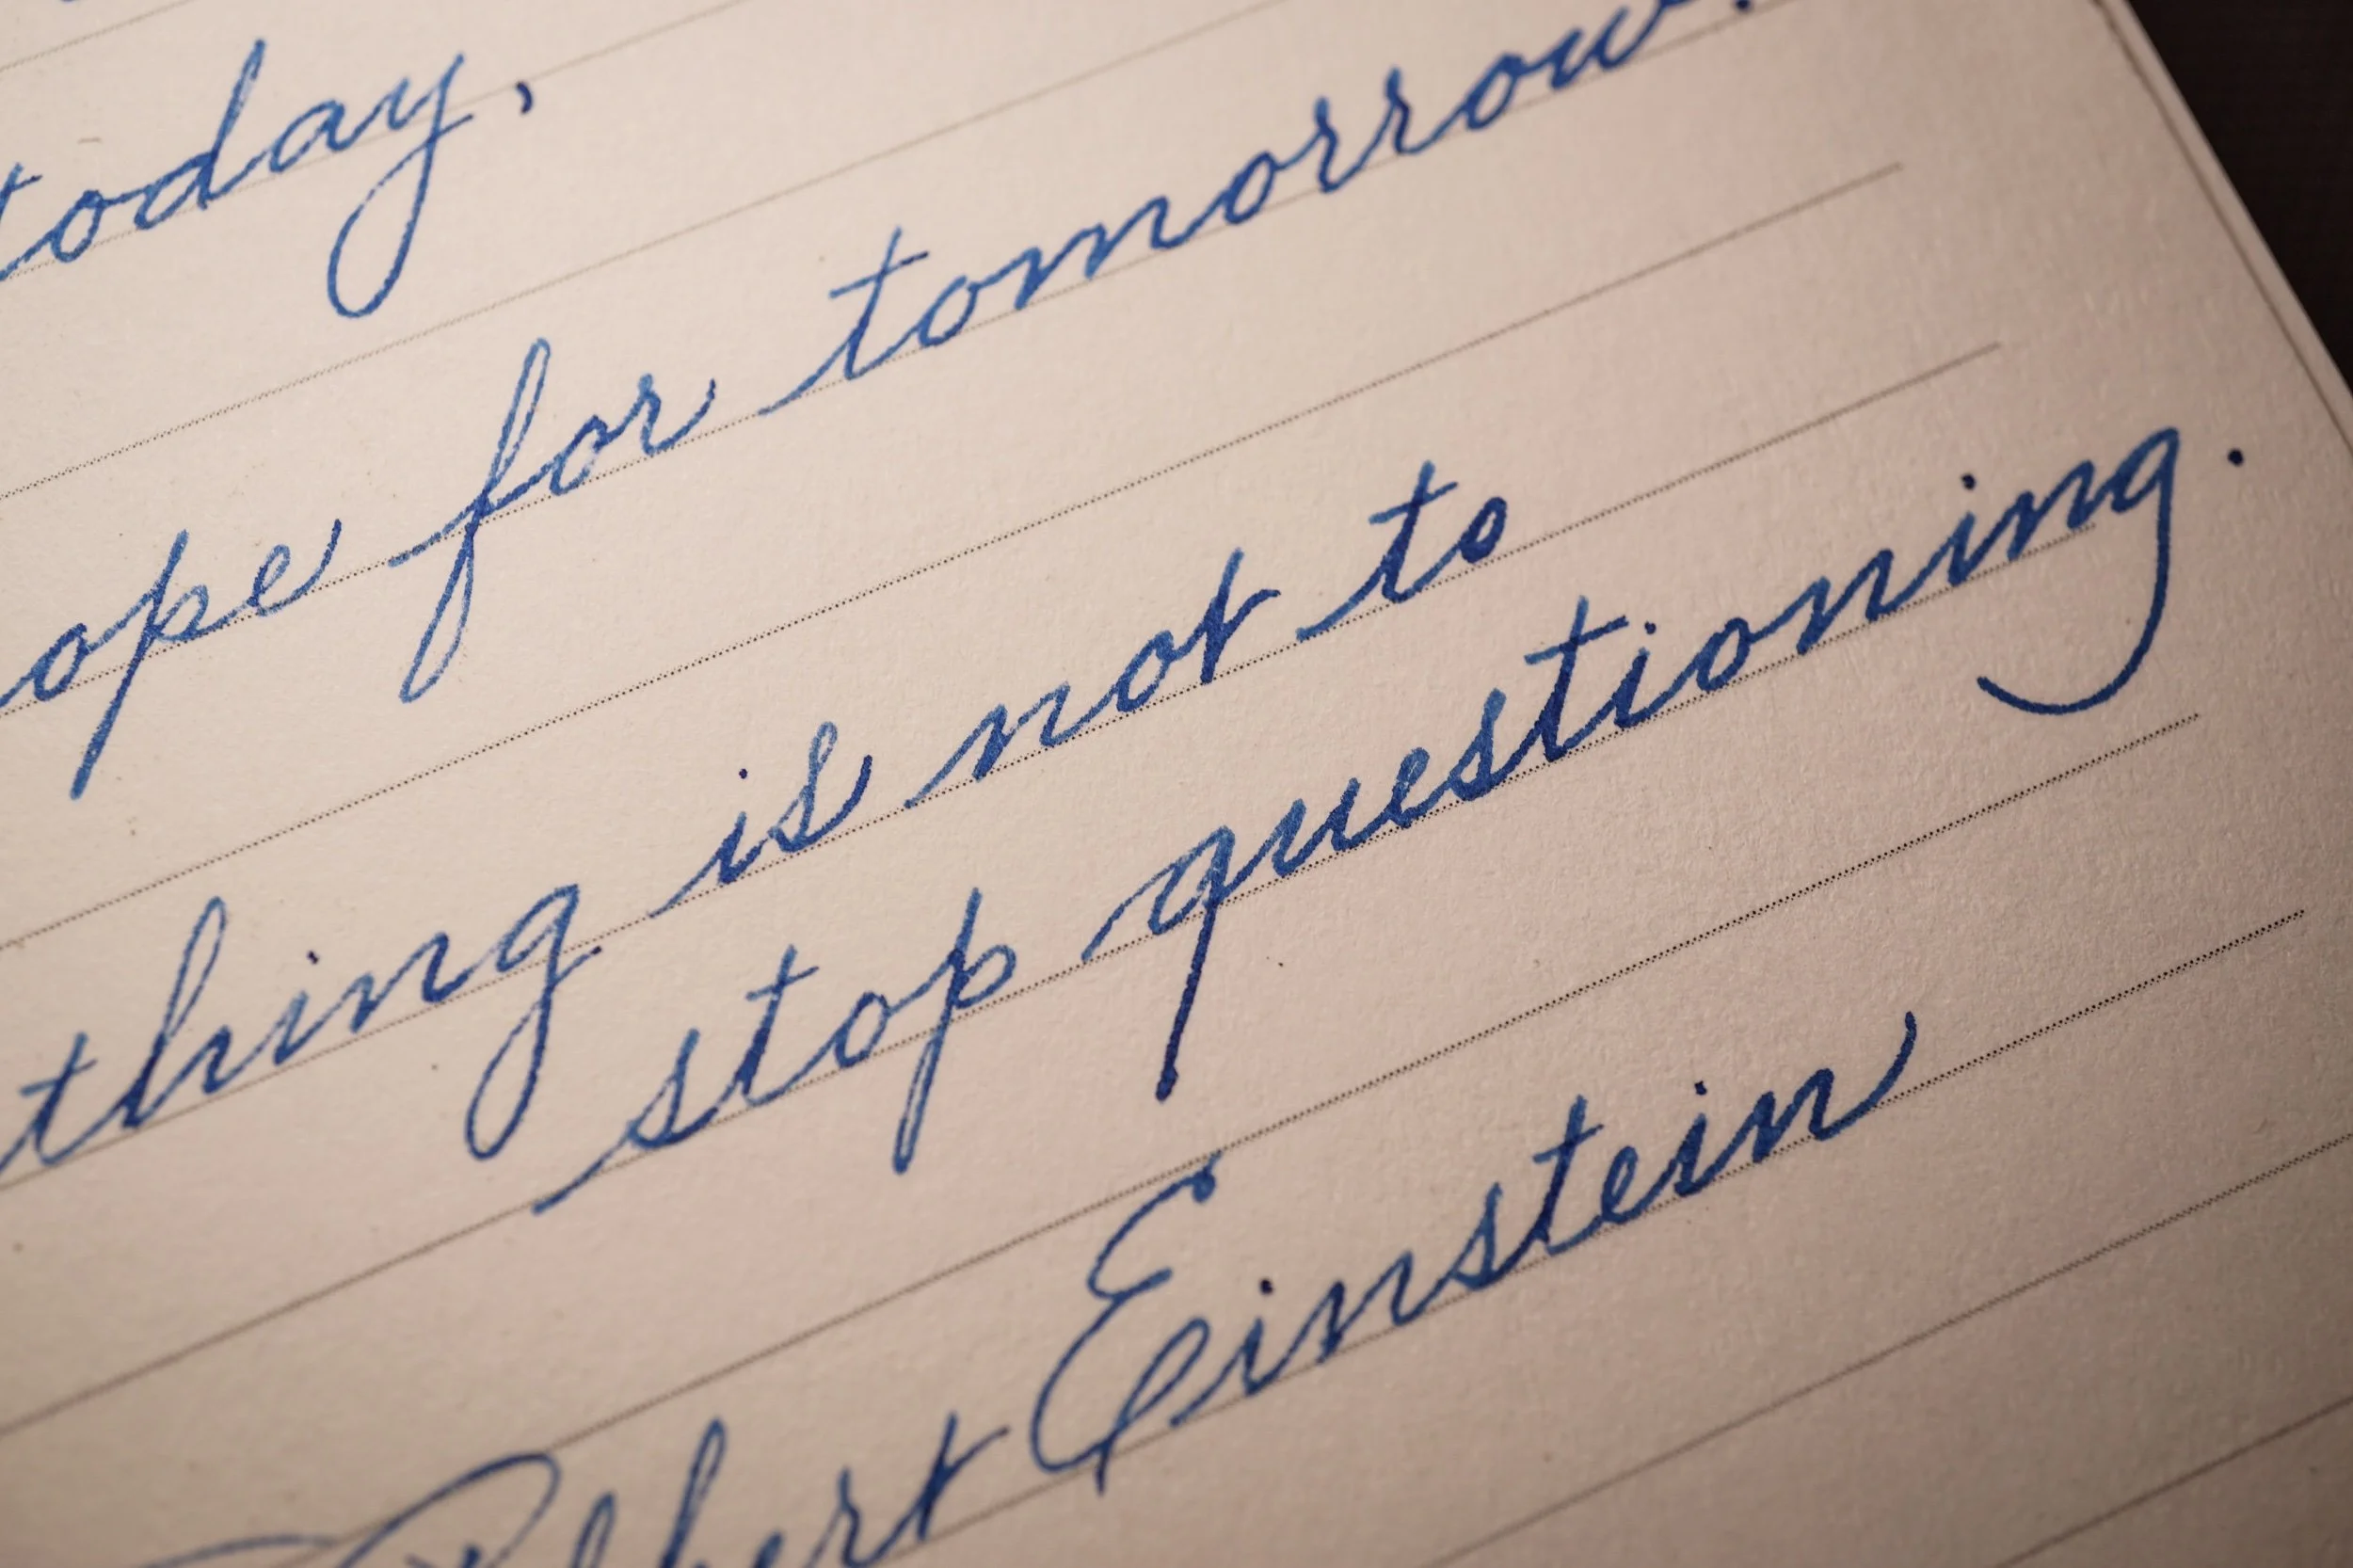 today,
ope for tomorrow.
thing is not to
stop questioning.
Albert Einstein